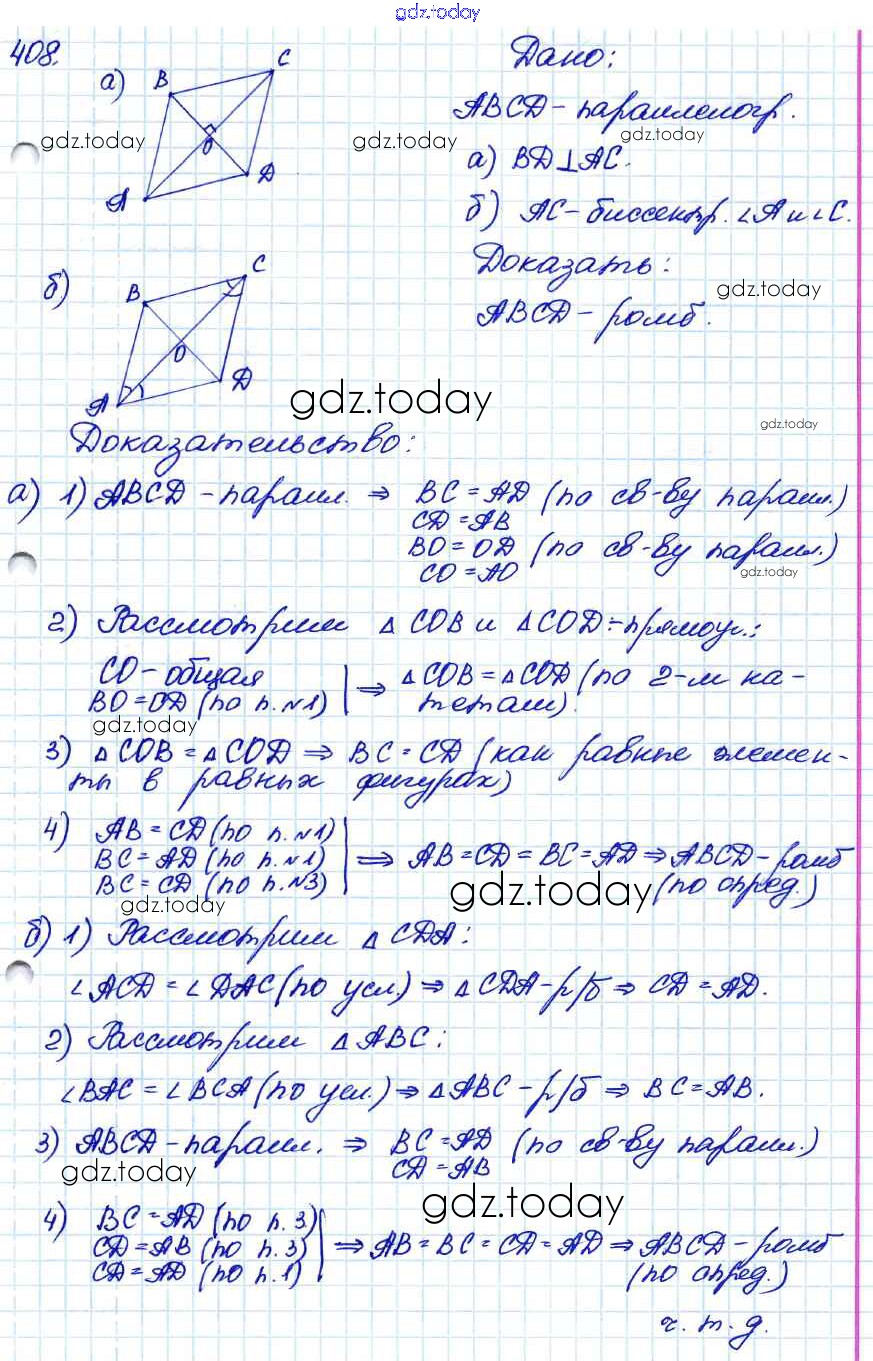 gdz.today
408.
а)
B
C
O
A
D
gdz.today
Дано:
ABCD - параллелогр.
gdz.today
gdz.today
а) BD⊥AC.
б) AC - биссектр. ∠A и ∠C.
Доказать:
gdz.today
ABCD - ромб.
б)
B
C
O
A
D
gdz.today
gdz.today
Доказательство:
а) 1) ABCD - паралл. ⇒ BC = AD (по св-ву паралл.)
CD = AB
BO = OD (по св-ву паралл.)
CO = AO
gdz.today
2) Рассмотрим △COB и △COD - прямоуг.:
CO - общая
BO = OD (по п.№1) ⇒ △COB = △COD (по 2-м ка-
тетам).
gdz.today
3) △COB = △COD ⇒ BC = CD (как равные элемен-
ты в равных фигурах)
4) AB = CD (по п.№1)
BC = AD (по п.№1) ⇒ AB = CD = BC = AD ⇒ ABCD - ромб
BC = CD (по п.№3) (по опред.)
gdz.today
gdz.today
б) 1) Рассмотрим △CDA:
∠ACD = ∠DAC (по усл.) ⇒ △CDA - р/б ⇒ CD = AD.
2) Рассмотрим △ABC:
∠BAC = ∠BCA (по усл.) ⇒ △ABC - р/б ⇒ BC = AB.
3) ABCD - паралл. ⇒ BC = AD (по св-ву паралл.)
CD = AB
gdz.today
gdz.today
4) BC = AD (по п. 3)
CD = AB (по п. 3) ⇒ AB = BC = CD = AD ⇒ ABCD - ромб
CD = AD (по п. 1) (по опред.)
ч. т. д.